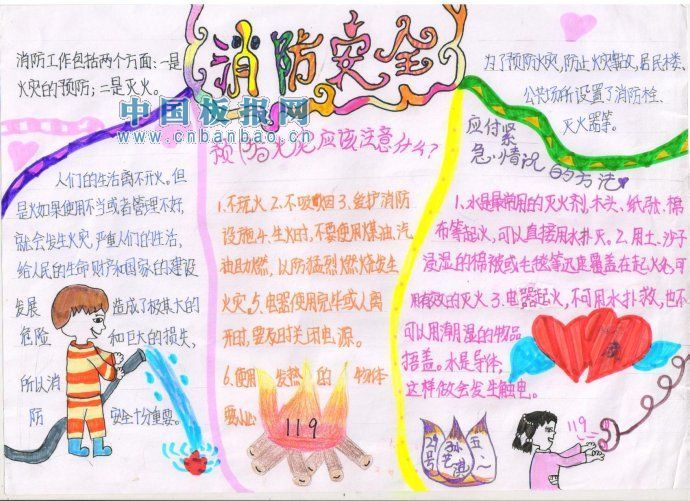 消防安全
消防工作包括两个方面：一是
火灾的预防；二是灭火。
中国板报网
www.cnbanbao.cn
人们的生活离不开火。但
是火如果使用不当或者管理不好，
就会发生火灾，严重人们的生活，
给人民的生命财产和国家的建设
发展 造成了极其大的
危险 和巨大的损失，
所以消
防 安全十分重要。
预防火灾应该注意什么？
1.不玩火2.不吸烟3.维护消防
设施4.生火时，不要使用煤油、汽
油助燃，以防猛烈燃烧发生
火灾。5.电器使用完毕或人离
开时，要及时关闭电源。
6.使用 发热 的 物体
要小心
119
为了预防火灾，防止火灾事故，居民楼、
公共场所设置了消防栓、
灭火器等。
应付紧
急情况的方法
1.水是最常用的灭火剂，木头、纸张、棉
布等起火，可以直接用水扑灭。2.用土、沙子
浸湿的棉被或毛毯等迅速覆盖在起火处可
用有效的灭火3.电器起火，不可用水扑救，也不
可以用潮湿的物品
捂盖。水是导体，
这样做会发生触电。
119
号
五